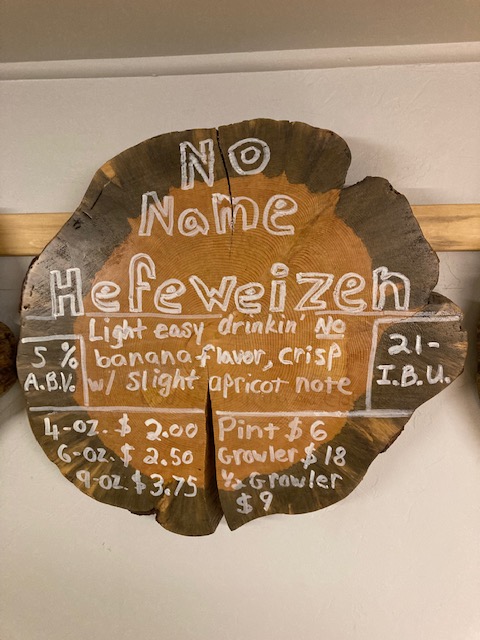 No
Name
Hefeweizen
Light easy drinkin' No
banana flavor, crisp
w/ slight apricot note
5 %
A.B.V.
21-
I.B.U.
4-oz. $ 2.00
6-oz. $ 2.50
9-oz. $ 3.75
Pint $ 6
Growler $ 18
1/2 Growler
$ 9